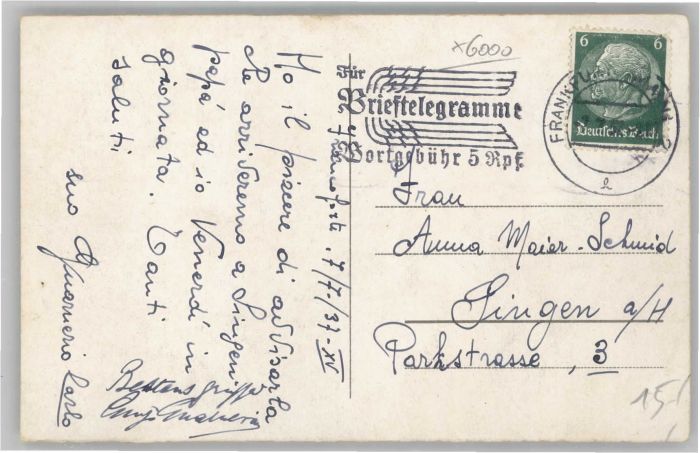 Francoforte. 7/7/37-XV
Ho il piacere di avvisarla
che arriveremo a Singen
papá ed io Venerdí in
giornata. Tanti
saluti
suo Guarniero Carlo
Bestens grüsst
x6000
Für
Brieftelegramme
Wortgebühr 5 Rpf.
6 6
Deutsches Reich
FRANKFURT
Frau
Anna Maier-Schmid
Singen a/H
Parkstrasse, 3
15,-